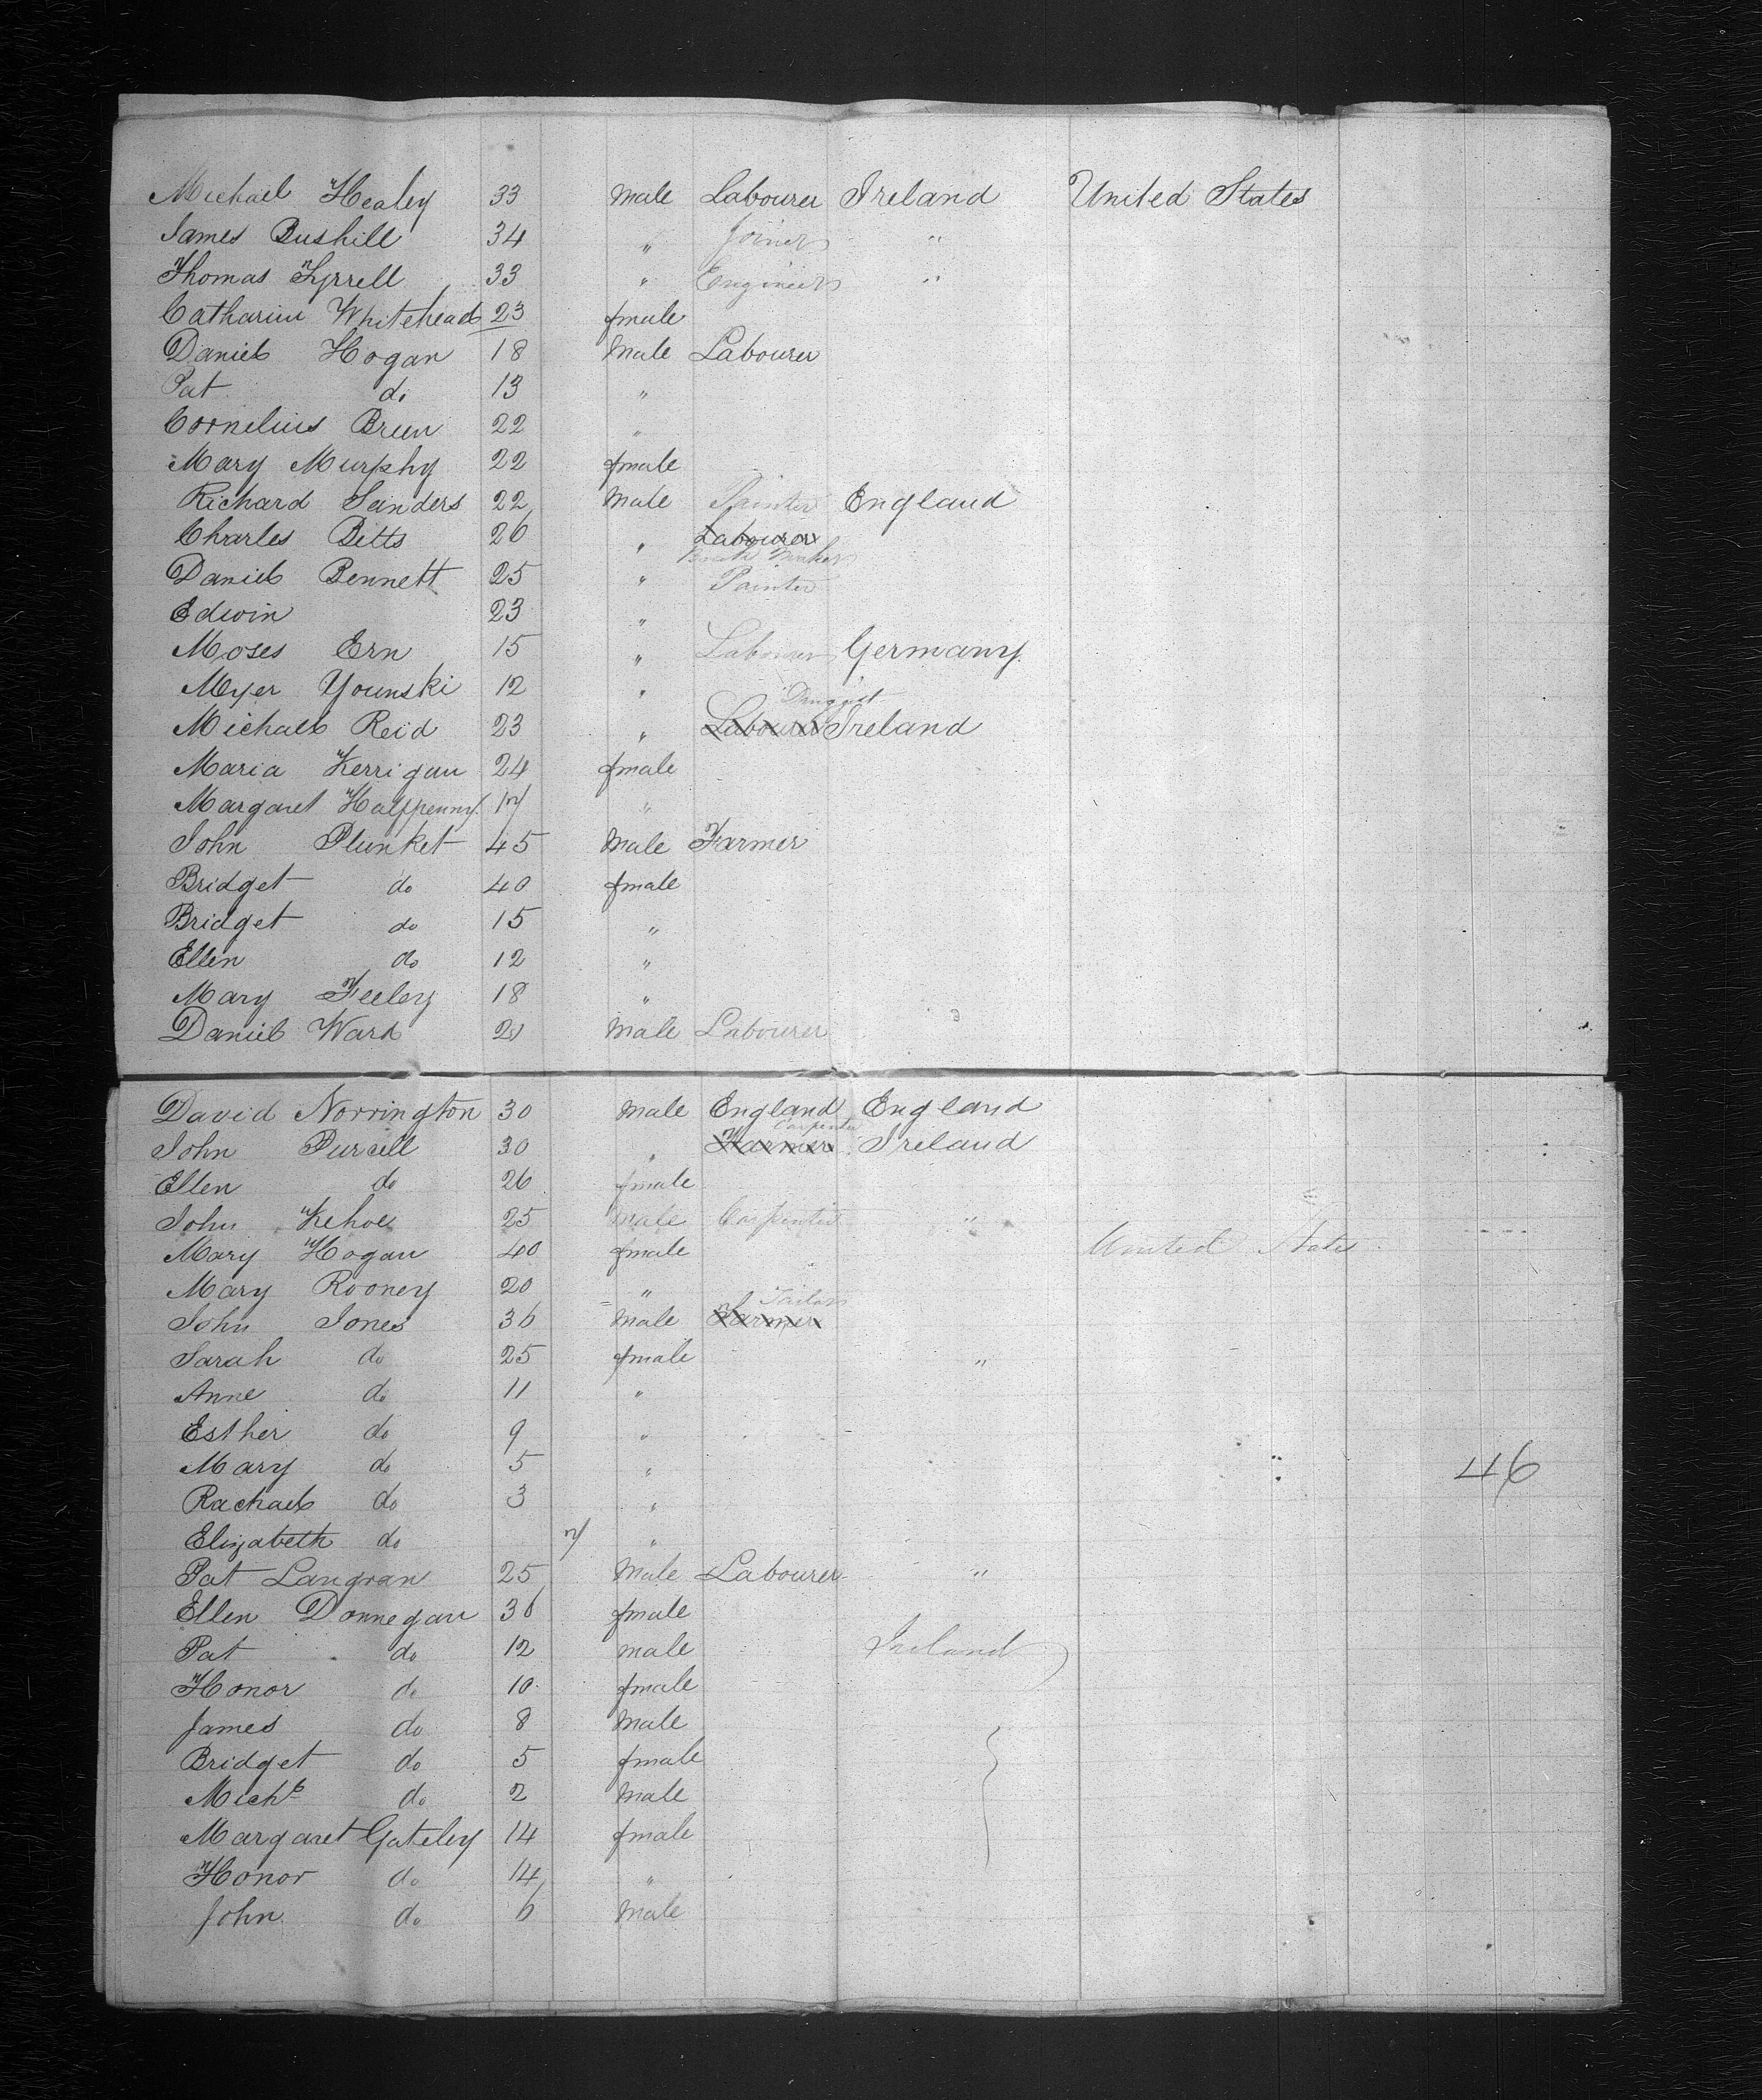 Michael Healey 33 Male Labourer Ireland United States
James Bushill 34 " Joiner "
Thomas Tyrrell 33 " Engineer "
Catharine Whitehead 23 female
Daniel Hogan 18 Male Labourer
Pat do 13 "
Cornelius Breen 22 "
Mary Murphy 22 female
Richard Sanders 22 Male Painter England
Charles Bitts 26 " Labourer
Maker
Daniel Bennett 25 " Painter
Edwin 23 "
Moses Ern 15 " Labourer Germany
Myer Younski 12 "
Druggist
Michael Reid 23 " Labourer Ireland
Maria Kerrigan 24 female
Margaret Halfpenny 17 "
John Plunket 45 Male Farmer
Bridget do 40 female
Bridget do 15 "
Ellen do 12 "
Mary Feeley 18 "
Daniel Ward 21 Male Labourer
David Norrington 30 Male England England
Carpenter
John Purcell 30 " Farmer Ireland
Ellen do 26 female
John Kehoe 25 Male Carpenter "
Mary Hogan 40 female United States
Mary Rooney 20 "
Tailor
John Jones 36 Male Farmer
Sarah do 25 female "
Anne do 11 "
Esther do 9 "
Mary do 5 " 46
Rachael do 3 "
Elizabeth do 7 "
Pat Langran 25 Male Labourer "
Ellen Donnegan 36 female
Pat do 12 male Ireland
Honor do 10 female
James do 8 Male
Bridget do 5 female
Michl do 2 Male
Margaret Gateley 14 female
Honor do 14 "
John do 6 Male